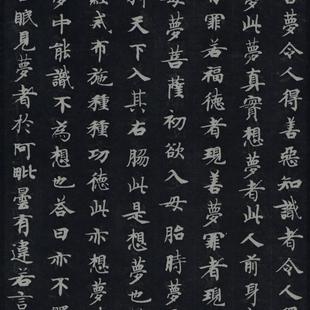 善夢令人得善惡知識者令人
夢此夢真實想夢者此人前身
有罪若福德者現善夢罪者現
母夢菩薩初欲入母胎時夢
利天下入其右脇此是想夢也
經戒布施種種功德此亦想夢
夢中能識不為想也答曰亦不
眠見夢者於阿毗曇有違若言